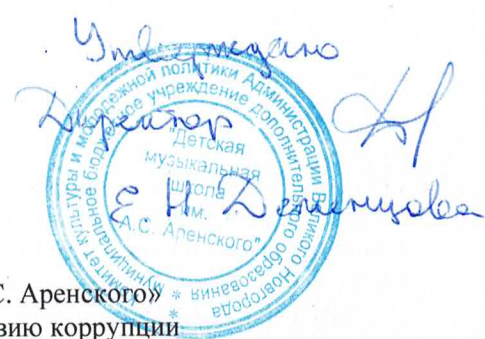 Утверждаю
Директор
Е Н Деменцова
Комитет культуры и молодежной политики Администрации Великого Новгорода
муниципальное бюджетное учреждение дополнительного образования
"Детская
музыкальная
школа
им.
А.С. Аренского"
С. Аренского»
вию коррупции